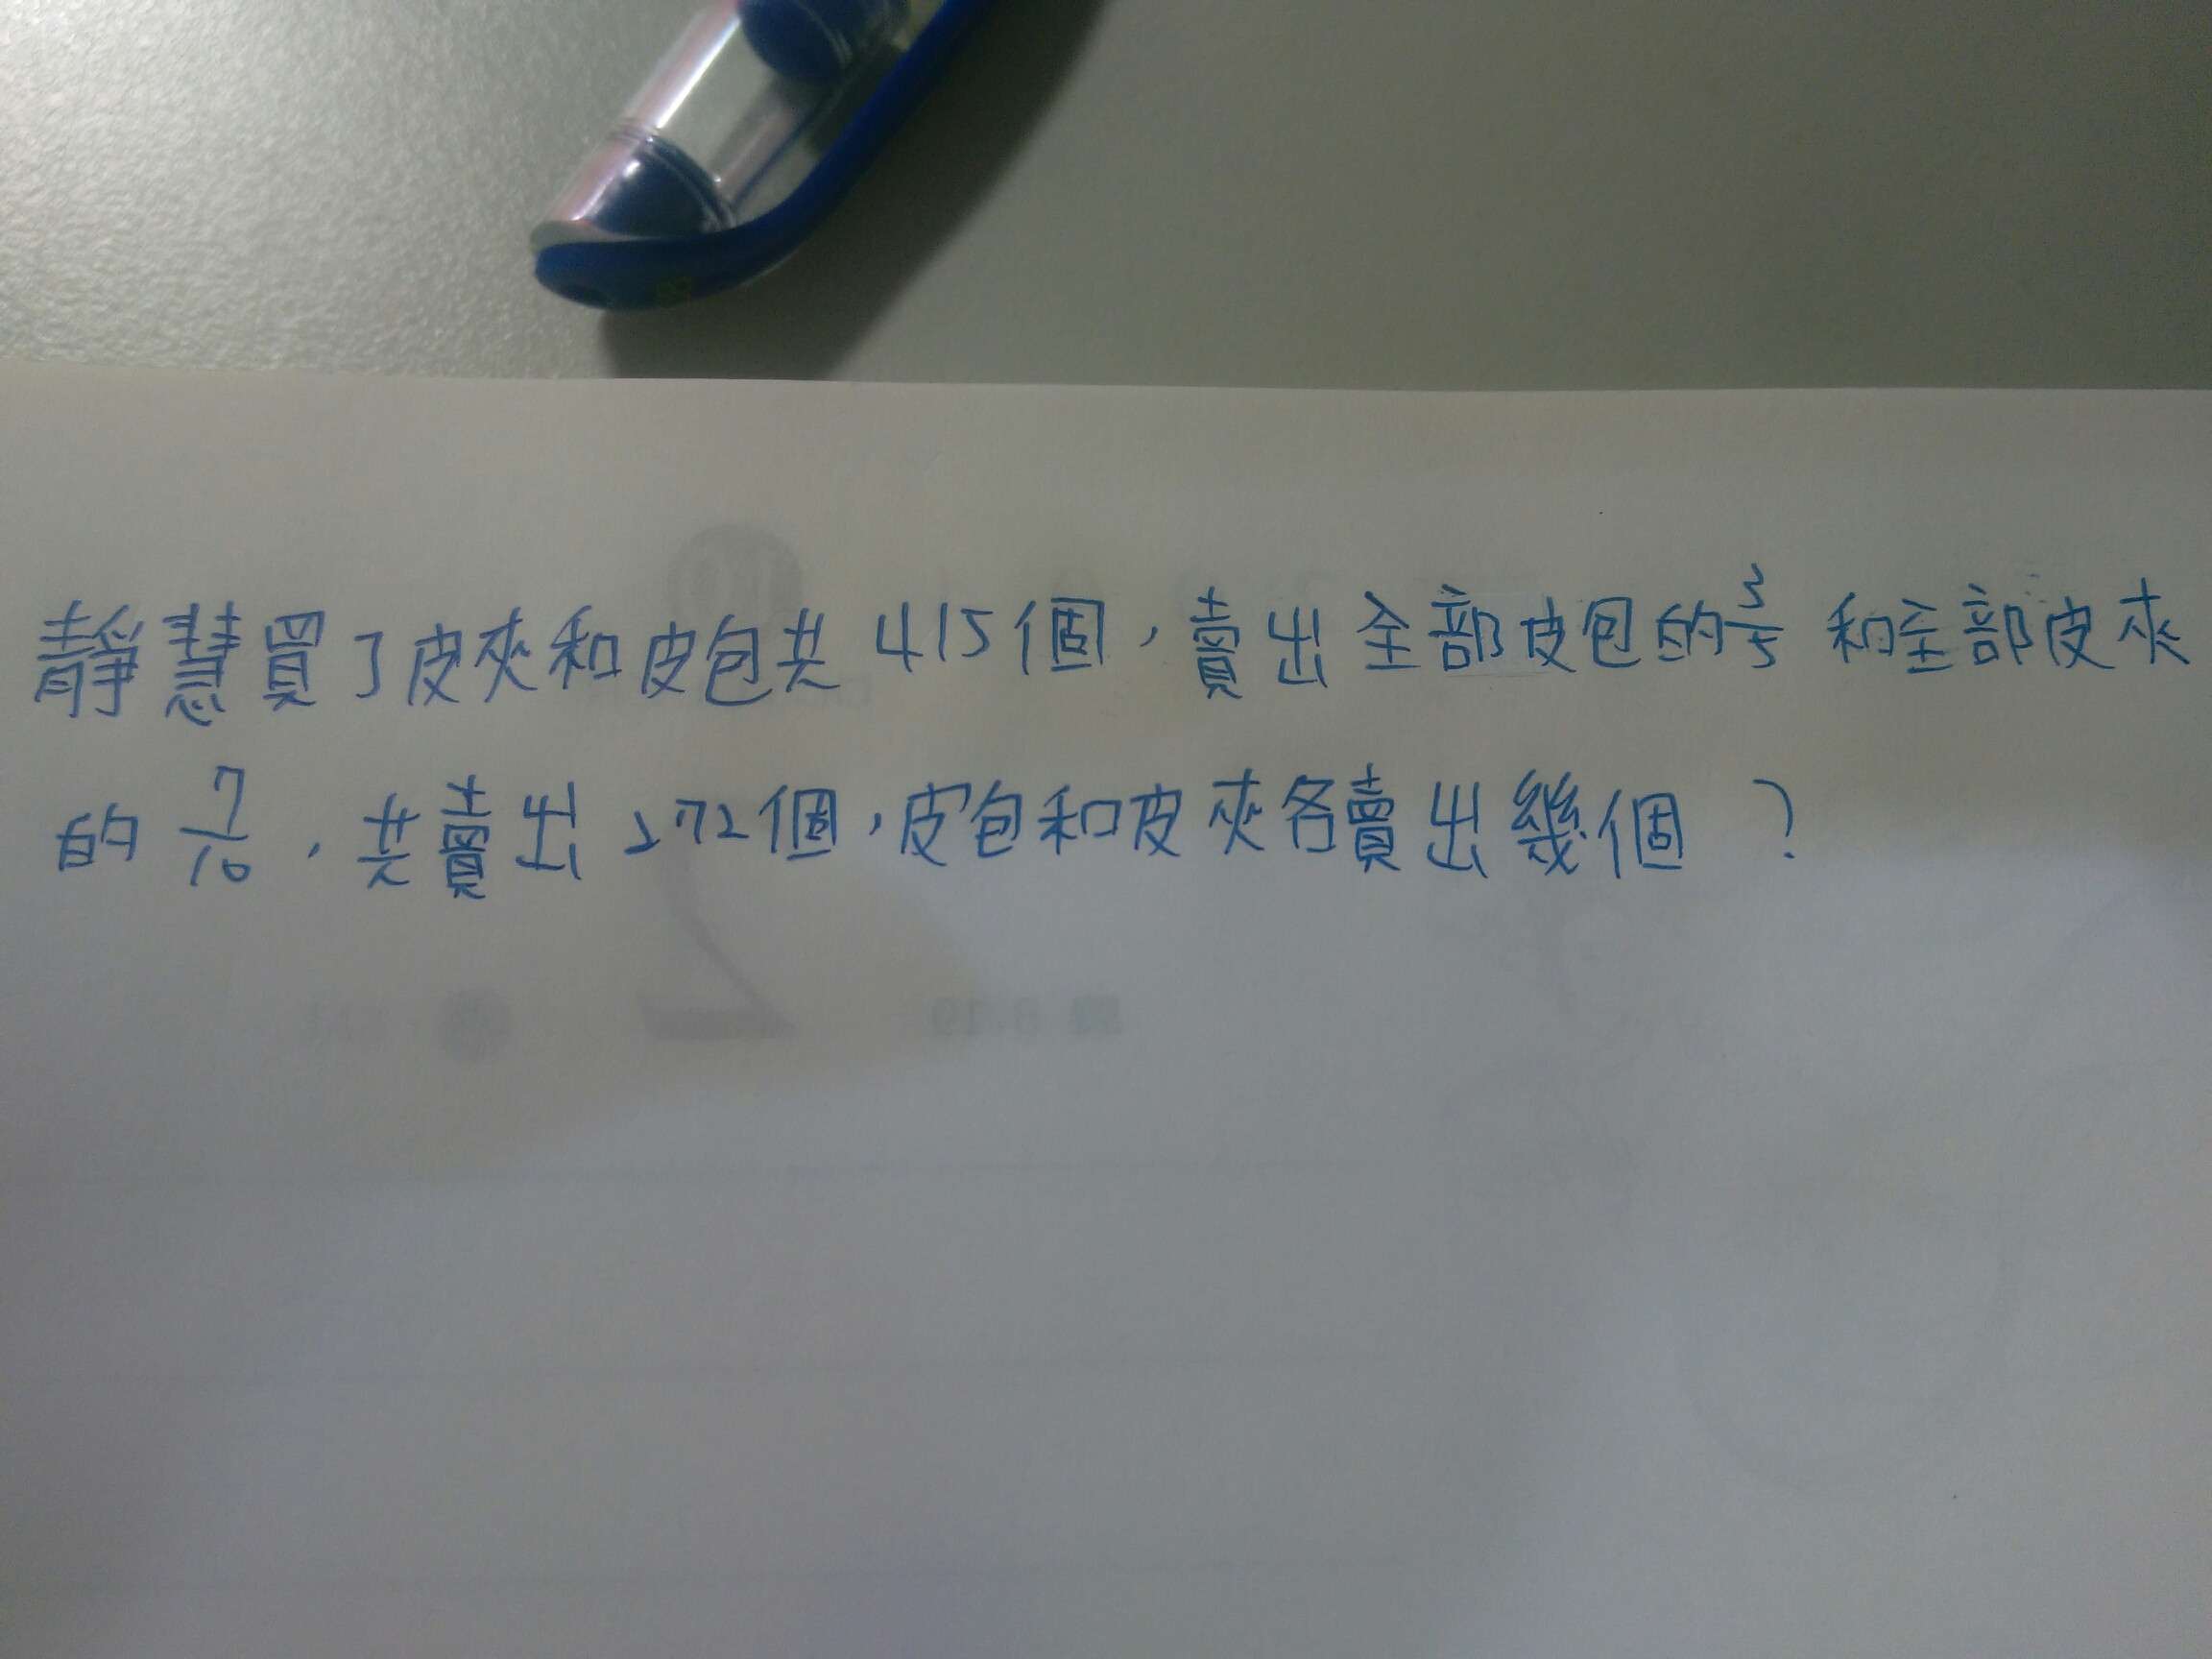 靜慧買了皮夾和皮包共415個，賣出全部皮包的3/5和全部皮夾
的7/10，共賣出272個，皮包和皮夾各賣出幾個？